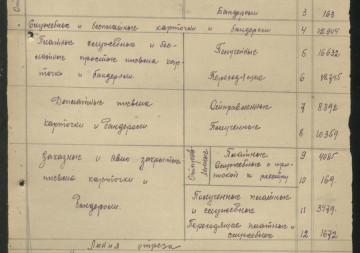 Бандероли 3 163
Служебные и бесплатные карточки и бандероли 4 12944
Платные служебные и бес-
платные простые письма кар-
точки и бандероли.
Полученные 5 16632
Переходящие 6 18745
Доплатные письма
карточки и бандероли
Отправленные 7 8392
Полученные 8 10369
Заказные и авио закрытые
письма карточки и
бандероли.
Платные 9 4085
служебные и при-
писной к реестру 10 169.
Полученные платные
и служебные 11 3479.
Переходящие платные и
служебные 12 1672
Линия отреза